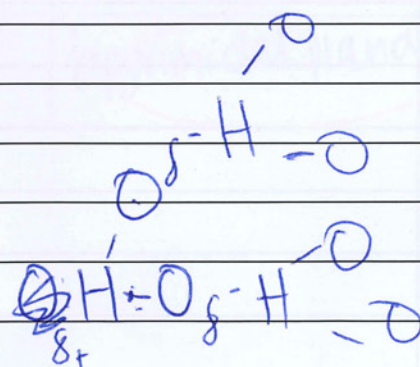 O
δ- H - O
O
H - O δ- H - O
δ+ O